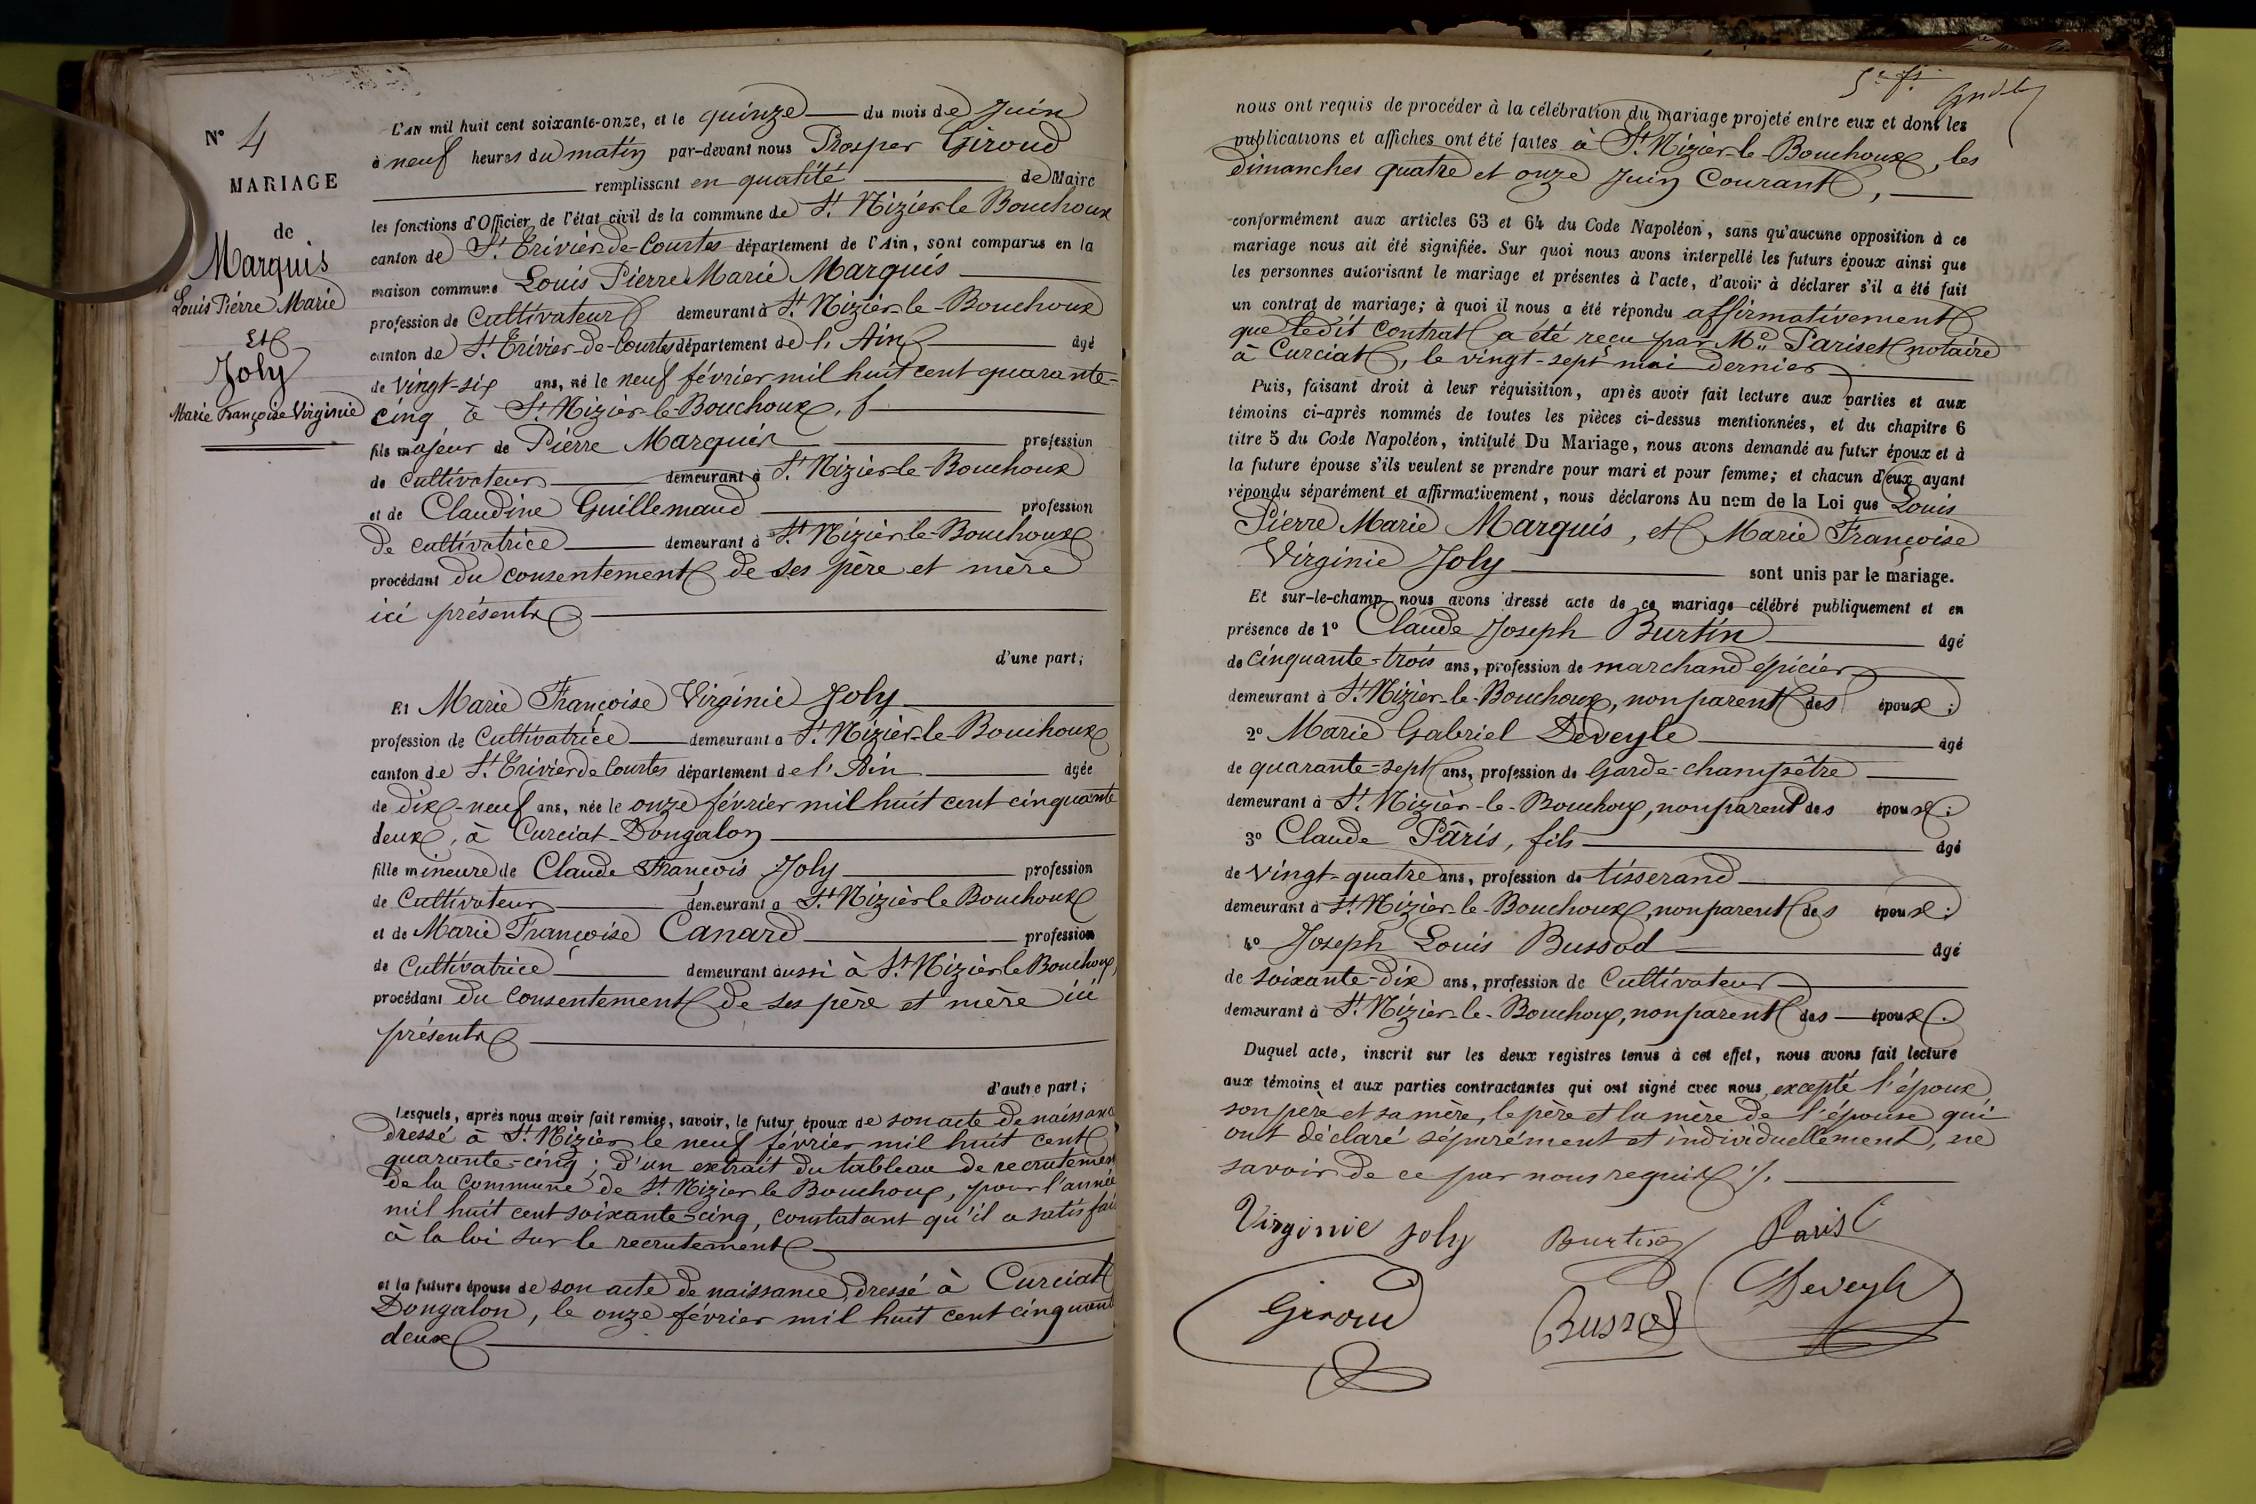 N° 4
MARIAGE
de
Marquis
Louis Pierre Marie
Et
Joly
Marie Françoise Virginie
L'AN mil huit cent soixante-onze, et le quinze du mois de Juin
à neuf heures du matin par-devant nous Prosper Giroud
remplissant en qualité de Maire
les fonctions d'Officier de l'état civil de la commune de St. Nizier-le Bouchoux
canton de St. Trivier-de-Courtes département de l'Ain, sont comparus en la
maison commune Louis Pierre Marie Marquis
profession de Cultivateur demeurant à St. Nizier-le-Bouchoux
canton de St. Trivier-de-Courtes département de l'Ain âgé
de vingt-six ans, né le neuf février mil huit cent quarante-
cinq à St. Nizier-le-Bouchoux,
fils majeur de Pierre Marquis profession
de Cultivateur demeurant à St. Nizier-le-Bouchoux
et de Claudine Guillemaud profession
de cultivatrice demeurant à St. Nizier-le-Bouchoux
procédant du consentement de ses père et mère
ici présents
d'une part;
Et Marie Françoise Virginie Joly
profession de Cultivatrice demeurant à St. Nizier-le-Bouchoux
canton de St. Trivier de Courtes département de l'Ain âgée
de dix-neuf ans, née le onze février mil huit cent cinquante
deux, à Curciat-Dongalon
fille mineure de Claude François Joly profession
de Cultivateur demeurant à St. Nizier le Bouchoux
et de Marie Françoise Canard profession
de Cultivatrice demeurant aussi à St. Nizier le Bouchoux,
procédant du Consentement de ses père et mère ici
présents
d'autre part;
Lesquels, après nous avoir fait remise, savoir, le futur époux de son acte de naissance
dressé à St. Nizier le neuf février mil huit cent
quarante-cinq; d'un extrait du tableau de recrutement
de la Commune de St. Nizier le Bouchoux, pour l'année
mil huit cent soixante-cinq, constatant qu'il a satisfait
à la loi sur le recrutement
et la future épouse de son acte de naissance dressé à Curciat
Dongalon, le onze février mil huit cent cinquante
deux
nous ont requis de procéder à la célébration du mariage projeté entre eux et dont les
publications et affiches ont été faites à St. Nizier-le-Bouchoux, les
dimanches quatre et onze Juin Courant,
conformément aux articles 63 et 64 du Code Napoléon, sans qu'aucune opposition à ce
mariage nous ait été signifiée. Sur quoi nous avons interpellé les futurs époux ainsi que
les personnes autorisant le mariage et présentes à l'acte, d'avoir à déclarer s'il a été fait
un contrat de mariage; à quoi il nous a été répondu affirmativement
que ledit contrat a été reçu par Me. Pariset notaire
à Curciat, le vingt-sept mai dernier
Puis, faisant droit à leur réquisition, après avoir fait lecture aux parties et aux
témoins ci-après nommés de toutes les pièces ci-dessus mentionnées, et du chapitre 6
titre 5 du Code Napoléon, intitulé Du Mariage, nous avons demandé au futur époux et à
la future épouse s'ils veulent se prendre pour mari et pour femme; et chacun d'eux ayant
répondu séparément et affirmativement, nous déclarons Au nom de la Loi que Louis
Pierre Marie Marquis, et Marie Françoise
Virginie Joly sont unis par le mariage.
Et sur-le-champ nous avons dressé acte de ce mariage célébré publiquement et en
présence de 1° Claude Joseph Burtin âgé
de cinquante-trois ans, profession de marchand épicier
demeurant à St. Nizier-le-Bouchoux, non parent des époux;
2° Marie Gabriel Deveyle âgé
de quarante-sept ans, profession de Garde-champêtre
demeurant à St. Nizier-le-Bouchoux, non parent des époux;
3° Claude Pâris, fils âgé
de vingt-quatre ans, profession de tisserand
demeurant à St. Nizier-le-Bouchoux, non parent des époux;
4° Joseph Louis Bussod âgé
de soixante-dix ans, profession de Cultivateur
demeurant à St. Nizier-le-Bouchoux, non parent des époux.
Duquel acte, inscrit sur les deux registres tenus à cet effet, nous avons fait lecture
aux témoins et aux parties contractantes qui ont signé avec nous, excepté l'époux,
son père et sa mère, le père et la mère de l'épouse qui
ont déclaré séparément et individuellement, ne
savoir de ce par nous requis ./.
Virginie Joly Burtin Paris C
Giroud Bussod Deveyle